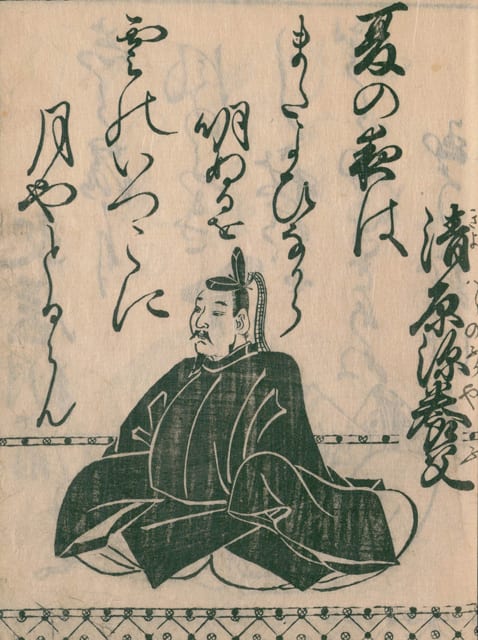 清原深養父
夏の夜は
またよひなから
明ぬるを
雲のいつこに
月やとるらん